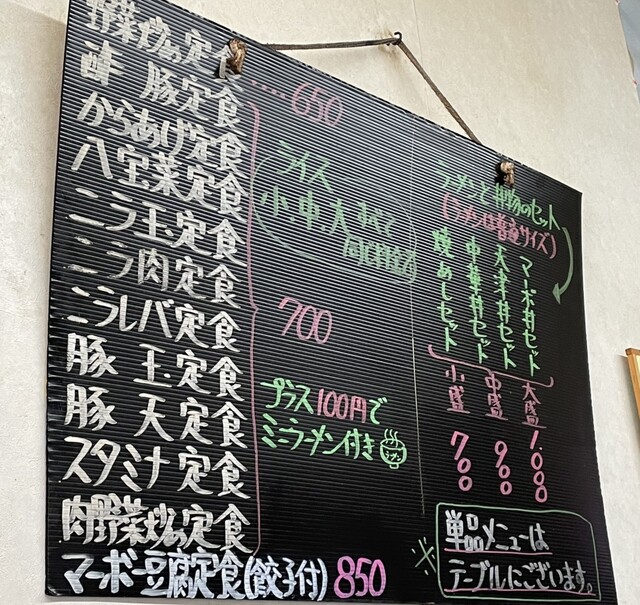 野菜炒め定食 650
酢豚定食
からあげ定食
八宝菜定食
ニラ玉定食
ニラ肉定食
ニラレバ定食
豚玉定食
豚天定食
スタミナ定食
肉野菜炒め定食
700
マーボ豆腐定食(餃子付) 850
ライス
小、中、大すべて
同じ料金
プラス100円で
ミニラーメン付き
ラーメン
ラーメンと丼物のセット
(ラーメンは普通サイズ)
マーボ丼セット
天津丼セット
中華丼セット
焼めしセット
大盛 1.000
中盛 900
小盛 700
※
単品メニューは
テーブルにございます。